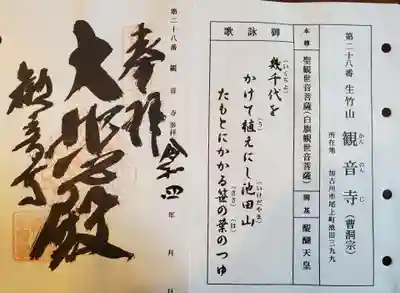 第二十八番 生竹山 観音寺(曹洞宗)
かんのんじ
所在地 加古川市尾上町池田三九九
本尊 聖観世音菩薩(白旗観世音菩薩) 開基 醍醐天皇
御詠歌
幾千代を
(いくちよ)
かけて植えにし池田山
(う) (いけだやま)
たもとにかかる笹の葉のつゆ
(ささ) (は)
第二十八番 観音寺参拝 令和四年 月 日
奉拝
大悲殿
観音寺